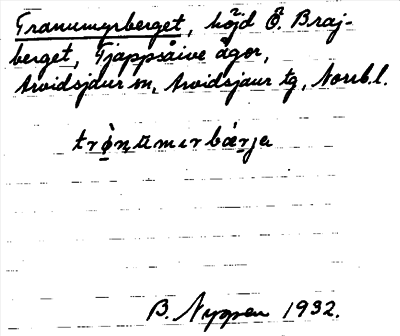 Tranumyrberget, höjd Ö. Braj-
berget, Tjappsåive ägor,
Arvidsjaur sn, Arvidsjaur tg, Norrb.l.
trò̱nɯmɪrbærja
B. Nyppen 1932.